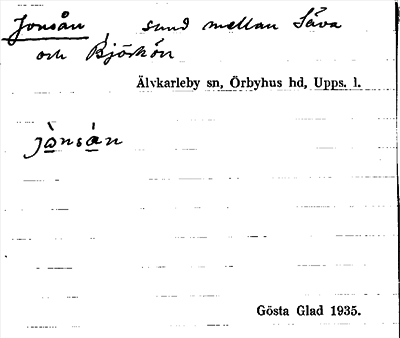 Jonsån, sund mellan Säva
och Björkön
Älvkarleby sn, Örbyhus hd, Upps. l.
jò̱nsá̱n
Gösta Glad 1935.